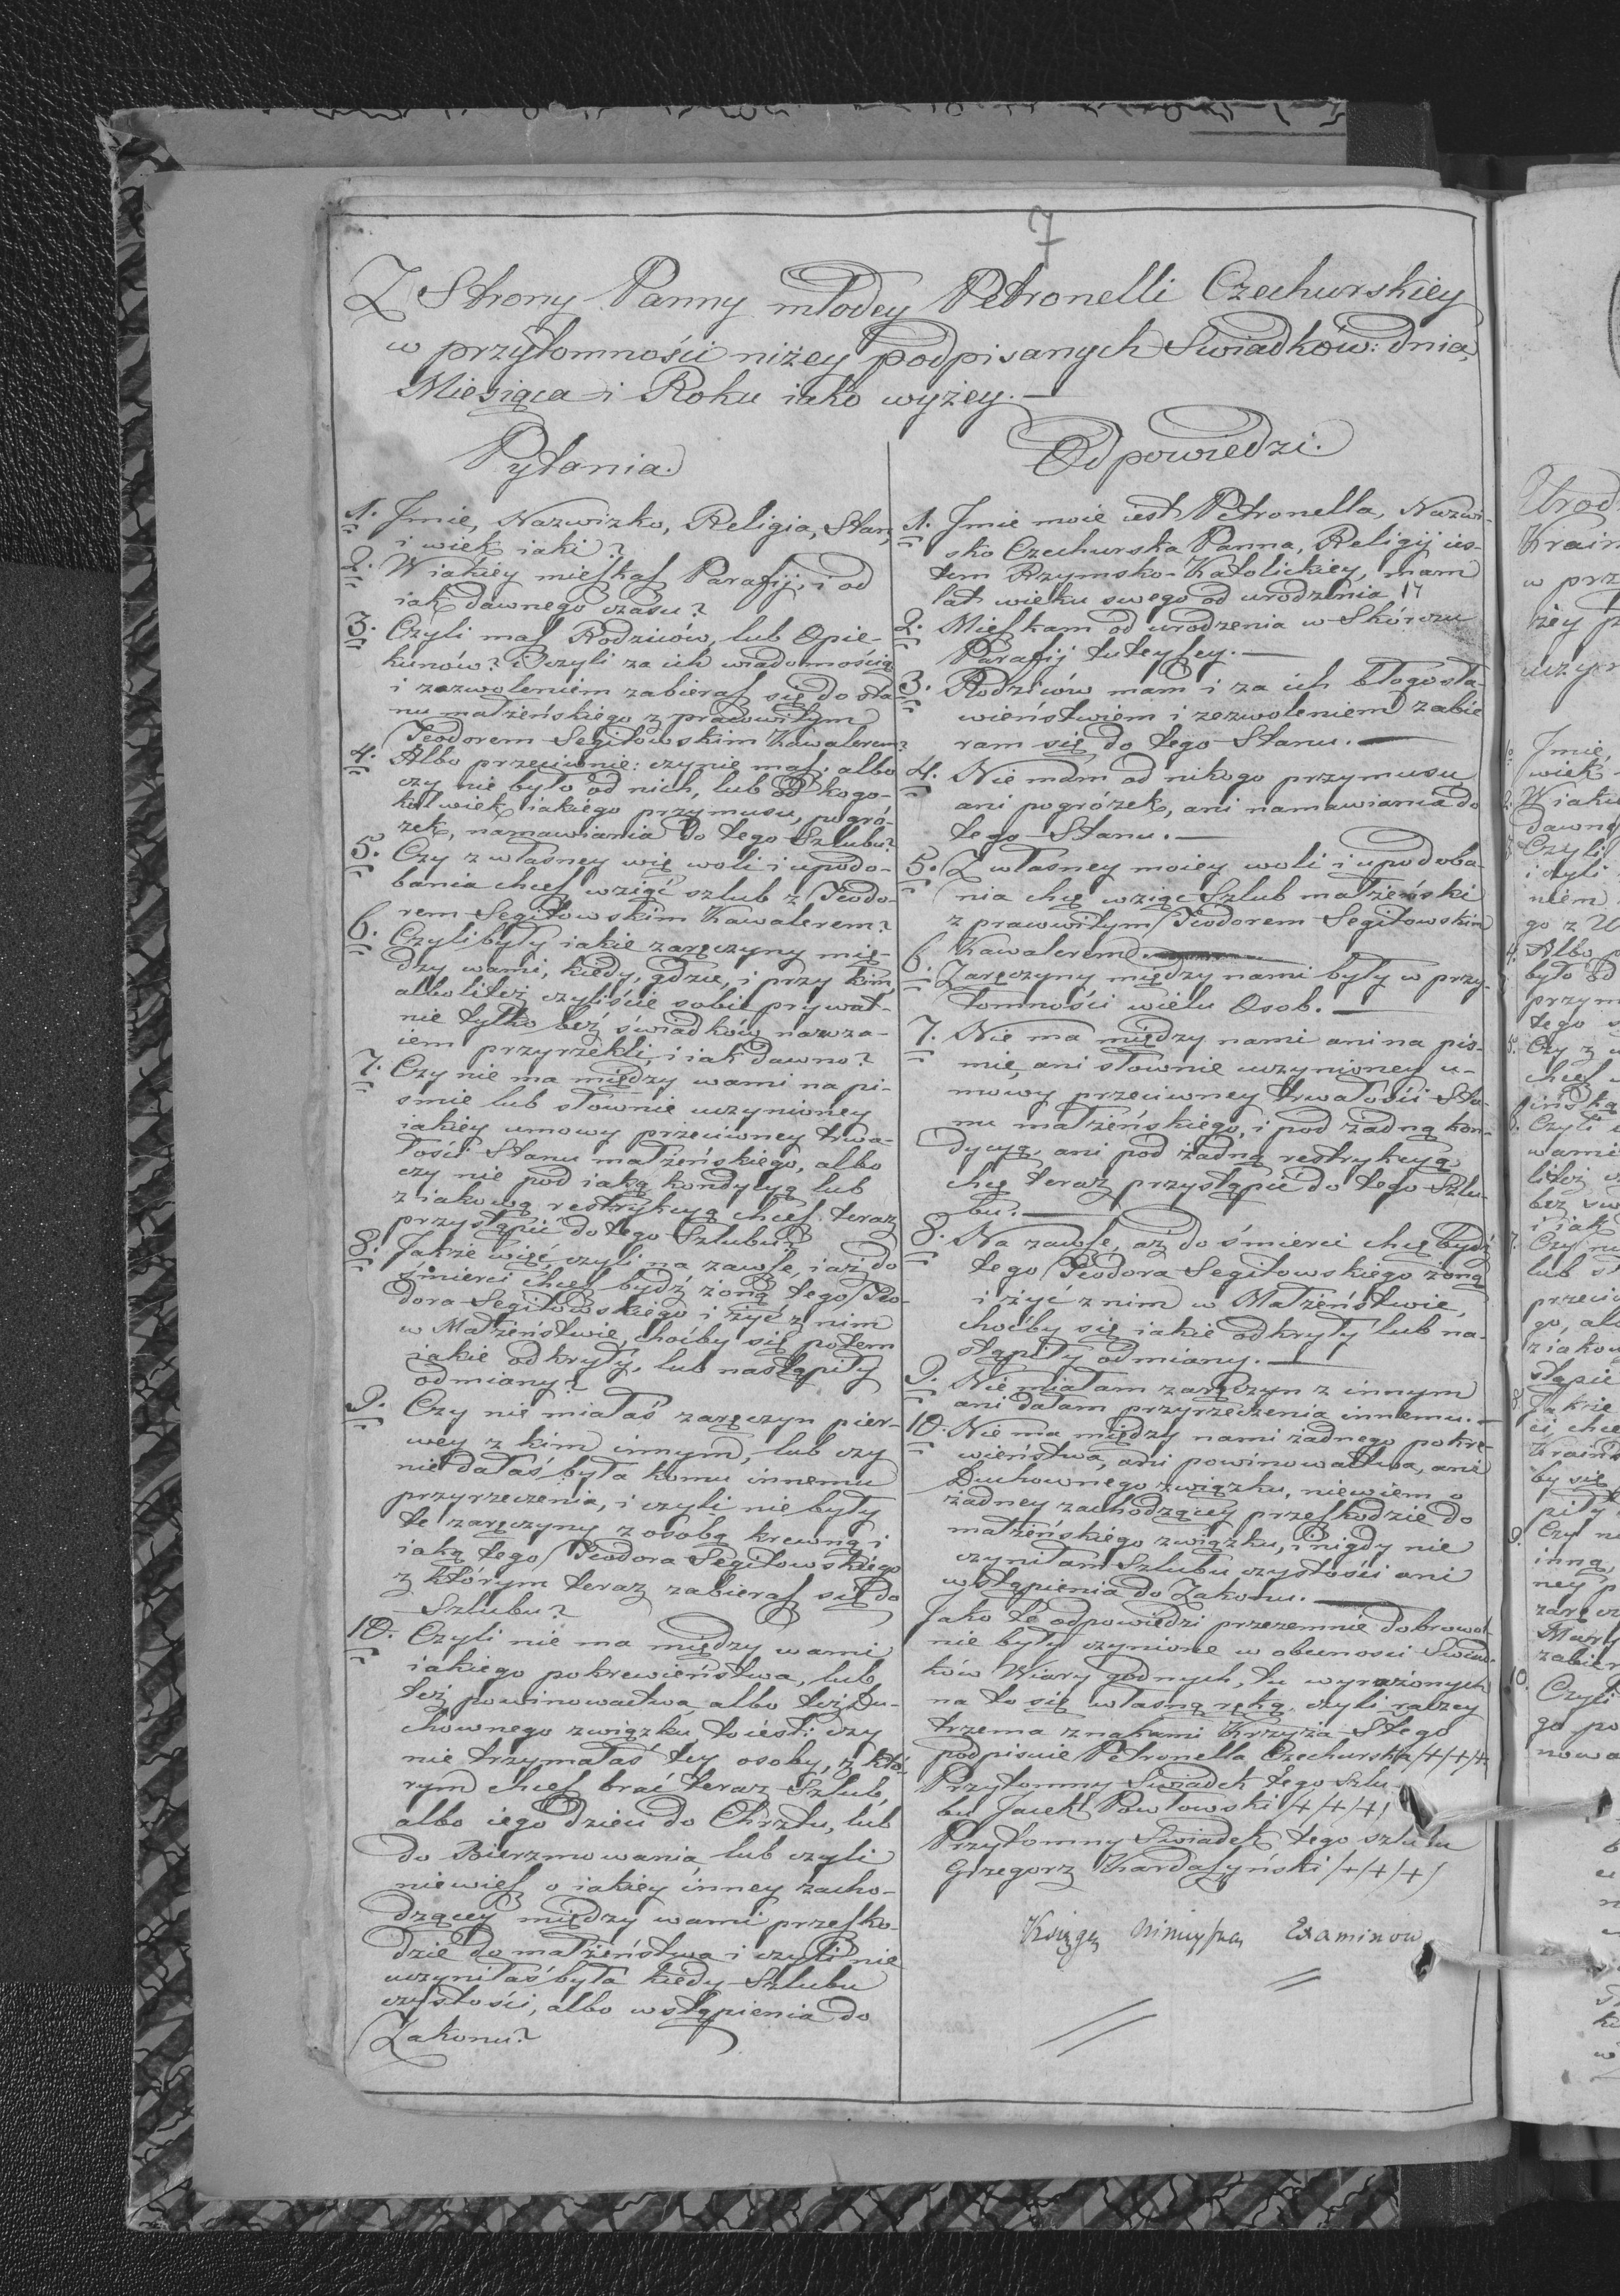 7
Z Strony Panny młodey Petronelli Czechurskiey
w przytomności niżey podpisanych Swiadków: dnia,
Miesiąca i Roku iako wyżey.—
Pytania.
1. Jmie, Nazwizko, Religia, Stan,
i wiek iaki?
2. W iakiey mieſkaſ Parafij, i od
iak dawnego czasu?
3. Czyli maſ Rodziców, lub Opie-
kunów? i czyli za ich wiadomością
i zezwoleniem zabieraſ się do sta-
nu małżeńskiego z prawowitym
Teodorem Segitowskim Kawalerem?
4. Albo przeciwnie: czy nie maſ, albo
czy nie było od nich, lub od kogo-
kolwiek iakiego przymusu, pogró-
żek, namawiania do tego Szlubu?
5. Czy z własney więc woli i upodo-
bania chceſ wziąć szlub z Teodo-
rem Segitowskim Kawalerem?
6. Czyli były iakie zaręczyny mię-
dzy wami, kiedy, gdzie, i przy kim,
albo liteż czyliście sobie prywat-
nie tylko beź świadków nawza-
iem przyrzekli i iak dawno?
7. Czy nie ma między wami na pi-
smie lub słownie uczynioney
iakiey umowy przeciwney trwa-
łości Stanu małżeńskiego, albo
czy nie pod iaką kondycyą lub
z iakową restrykcyą chceſ teraz
przystąpić do tego Szlubu?
8. Jakże więć, czyli na zawſe, i aż do
śmierci chceſ bydź żoną tego Teo-
dora Segitowskiego i żyć z nim
w Małżeństwie, choćby się potem
iakie odkryły, lub nastąpiły
odmiany?
9. Czy nie miałaś zaręczyn pier-
wey z kim innym, lub czy
nie dałaś była komu innemu
przyrzeczenia, i czyli nie były
te zaręczyny z osobą krewną i
iaką tego Teodora Segitowskiego
z którym teraz zabieraſ się do
Szlubu?
10. Czyli nie ma między wami
iakiego pokrewieństwa, lub
też powinowactwa albo też Du-
chownego związku to iest: czy
nie trzymałaś tey osoby, z któ-
rym chceſ brać teraz Szlub,
albo iego dzieci do Chrztu, lub
do Bierzmowania lub czyli
niewieſ o iakiey inney zacho-
dzącey między wami przeſko-
dzie do małżeństwa i czyli nie
uczyniłaś była kiedy Szlubu
czystości, albo wstąpienia do
Zakonu?
Odpowiedzi.
1. Jmie moie iest Petronella, Nazwi-
sko Czechurska Panna, Religij ies-
tem Rzymsko-Katolickiey, mam
lat wieku swego od urodzenia 17
2. Mieſkam od urodzenia w Skórczu
Parafij tuteyſey.—
3. Rodziców mam i za ich błogosła-
wieństwiem i zezwoleniem zabie
ram się do tego Stanu.—
4. Nie mam od nikogo przymusu
ani pogróżek, ani namawiania do
tego Stanu.—
5. Z własney moiey woli i upodoba-
nia chcę wziąc Szlub małżeński
z prawowitym Teodorem Segitowskim
Kawalerem.—
6. Zaręczyny między nami były w przy-
tomności wielu Osob.—
7. Nie ma między nami ani na pis-
mie, ani słownie uczynioney u-
mowy przeciwney trwałości Sta-
nu małżeńskiego, i pod żadną kon-
dycyą, ani pod żadną restrykcyą
chcę teraz przystąpić do tego Szlu-
bu.—
8. Na zawſe, aż do śmierci chcę bydź
tego Teodora Segitowskiego żoną
i żyć z nim w Małżeństwie,
choćby się iakie odkryły lub na-
stąpiły odmiany.—
9. Nie miałam zaręczyn z innym
ani dałam przyrzeczenia innemu.—
10. Nie ma między nami żadnego pokre-
wieństwa, ani powinowactwa, ani
Duchownego związku, niewiem o
żadney zachodzącey przeſkodzie do
małżeńskiego związku, i nigdy nie
czyniłam Szlubu czystości ani
wstąpienia do Zakonu.—
Jako te odpowiedzi przezemnie dobrowol-
nie były czynione w obecności Swiad-
ków Wiary godnych, tu wyrażonych
na to się własną ręką, czyli raczey
trzema znakami Krzyża Stego
podpisuie Petronella Czechurska /+/+/+
Przytomny Swiadek tego szlu-
bu Jacek Pawłowski /+/+/+/
Przytomny Swiadek tego szlubu
Grzegorz Kardaſyński /+/+/+/
Księga Examinow